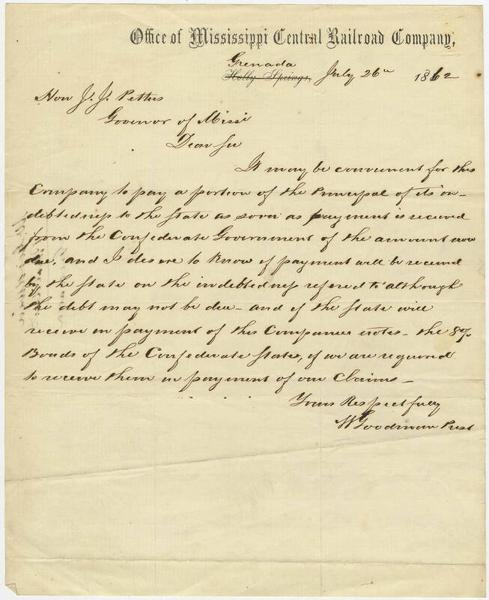 Office of Mississippi Central Railroad Company,
Grenada
Holly Springs, July 26th 1862
Hon J. J. Pettus
Govenor of Missi
Dear Sir
It may be convenient for this
Company to pay a portion of the Principal of its in-
debtedness to the State as soon as payment is received
from the Confederate Government of the amount now
due, and I desire to know if payment will be received
by the State on the indebtedness refered to although
the debt may not be due - and if the State will
receive in payment of this Companies notes - the 8%
Bonds of the Confederate States, if we are required
to receive them in payment of our Claims -
Yours Respectfully
W Goodman Prest